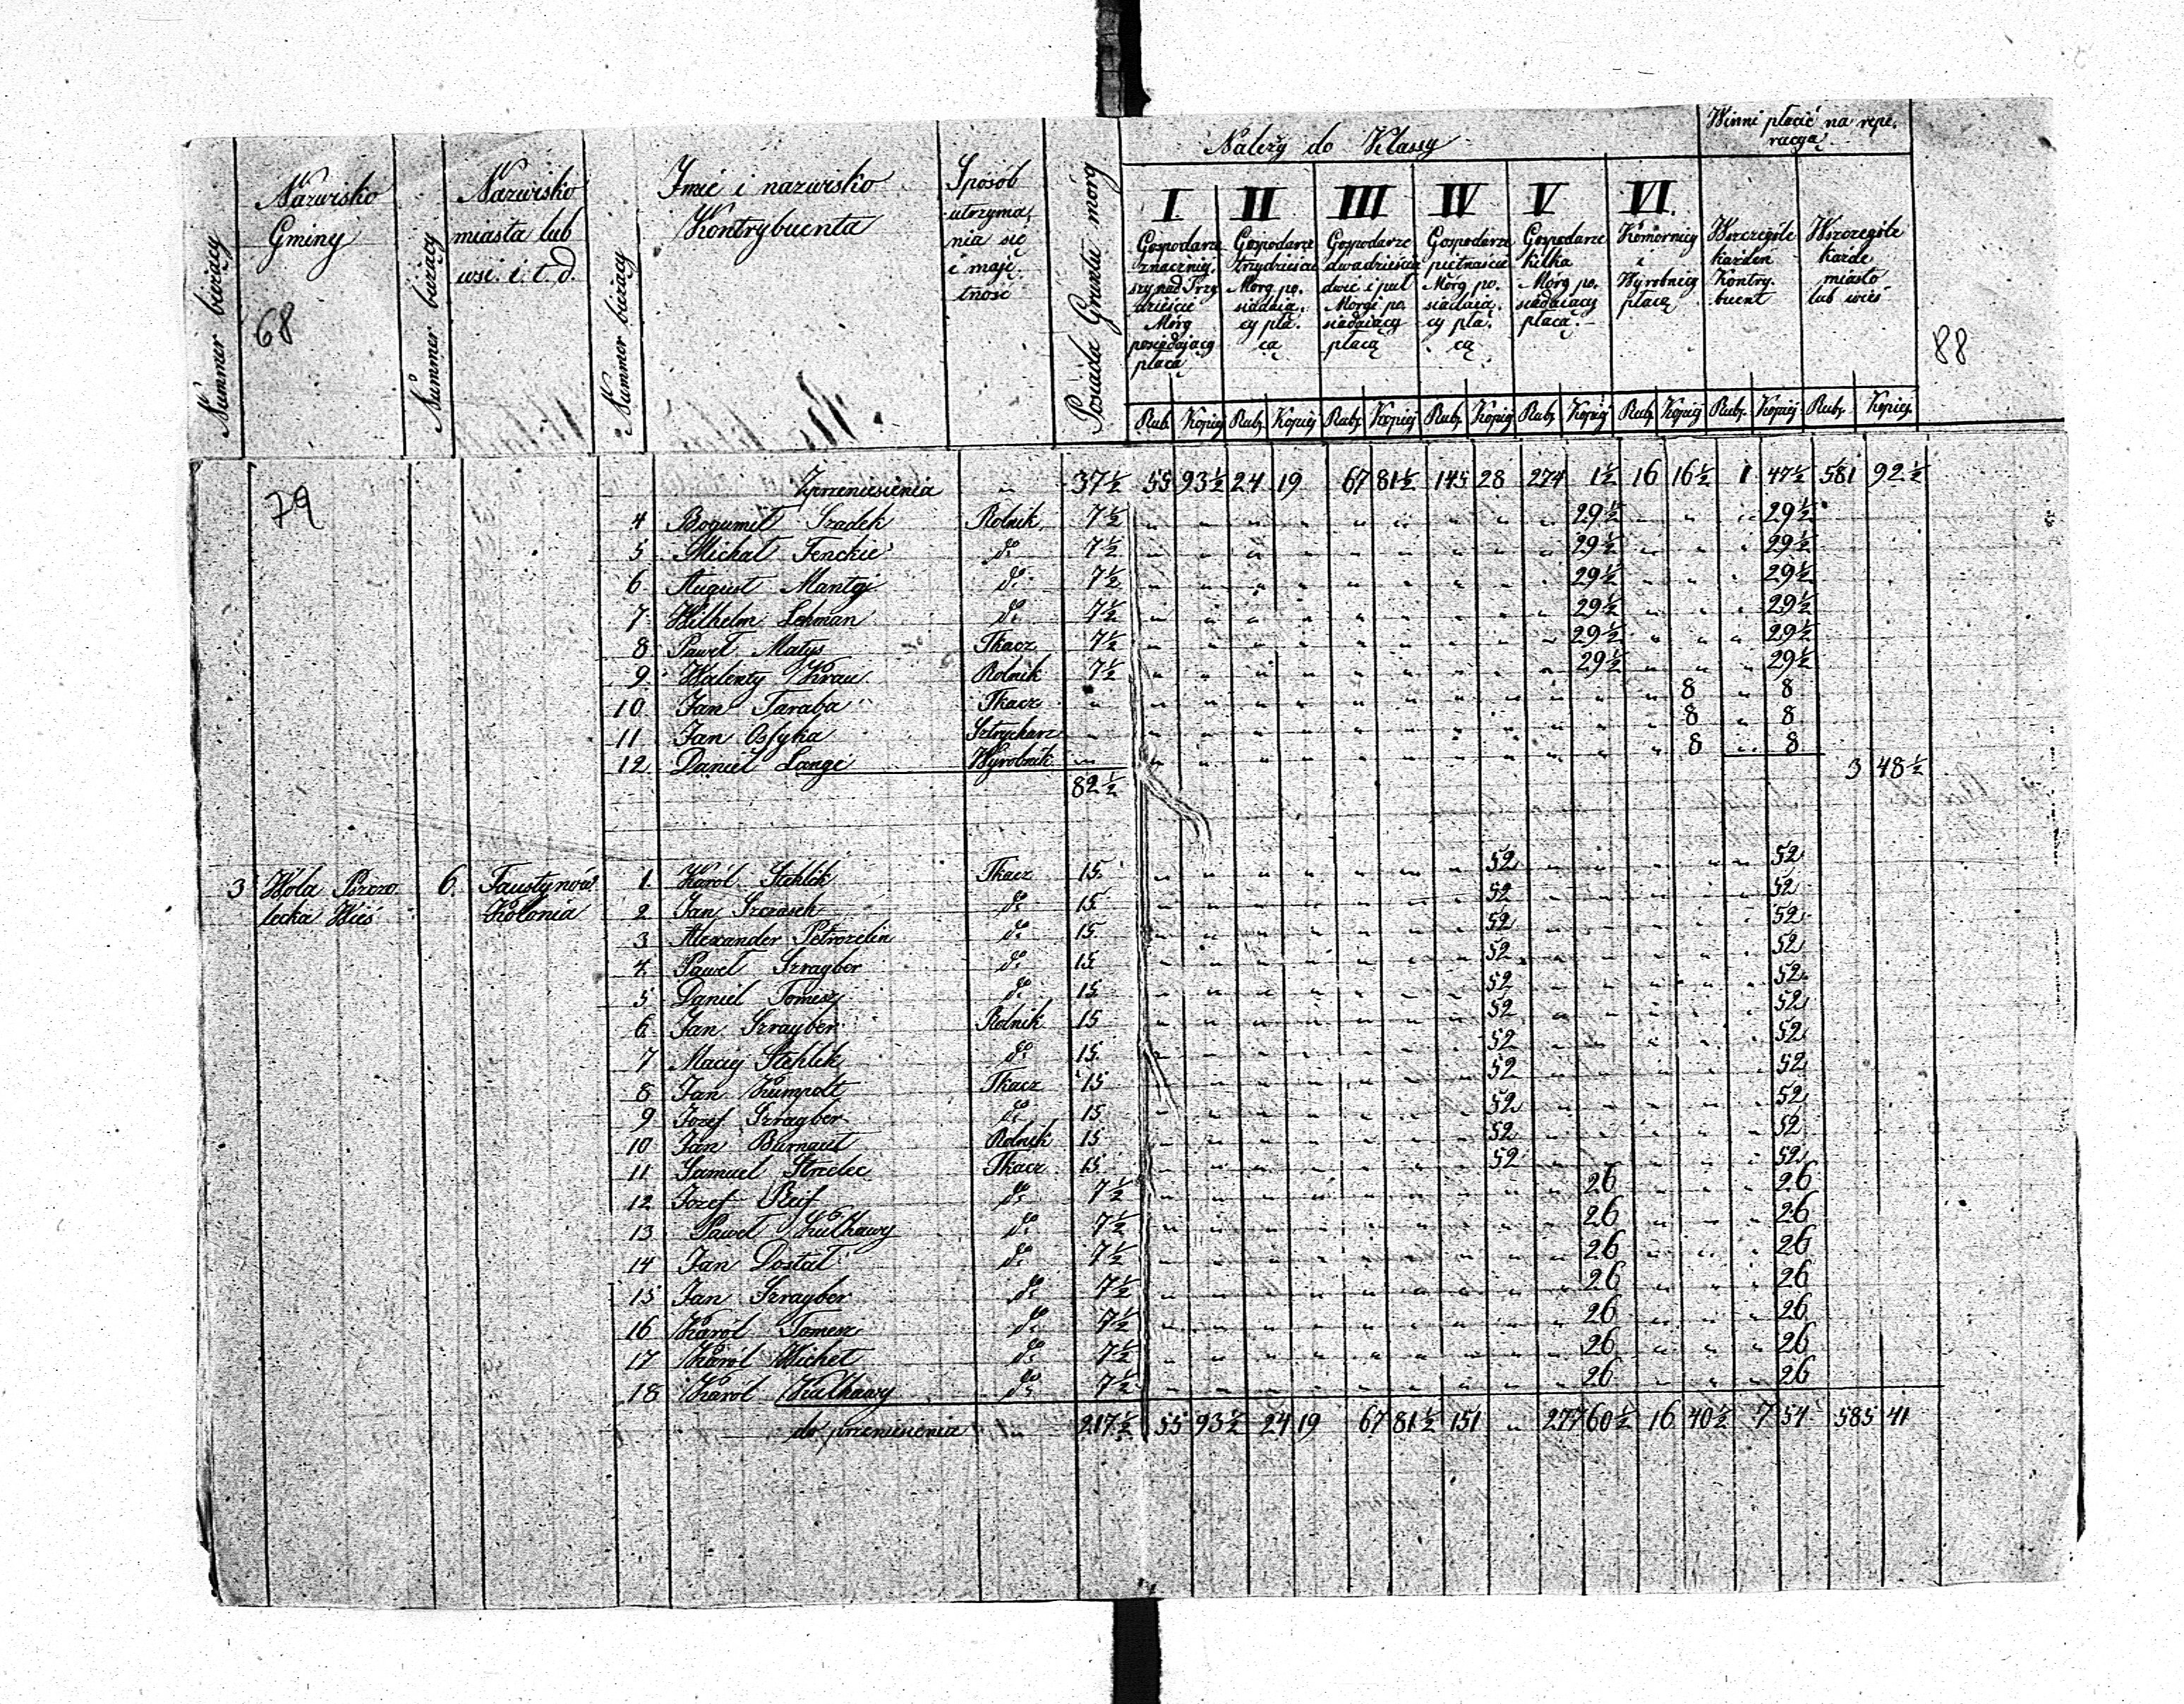 Winni płacić na repe-
racyą
Należy do Klassy
Nummer bieżący
Nazwisko
Gminy
68
Nummer bieżący
Nazwisko
miasta lub
wsi i. t. d.
Nummer bieżący
Imie i nazwisko
Kontrybuenta
Sposób
utrzyma-
nia się
i mają-
tność
Posiada Gruntu mórg
I. Gospodarze
znaczniej-
szy nad Trzy
dzieście
Mórg
posiadający
płacą
II Gospodarze
trzydzieście
Mórg po-
siadają-
cy pła-
cą
III Gospodarze
dwadzieścia
dwie i puł
Morgi po-
siadający
płacą
IV Gospodarze
pietnaście
Mórg po-
siadają-
cy pła-
cą
V Gospodarze
kilka
Mórg po-
siadający
płacą
VI. Komornicy
i
Wyrobnicy
płacą
Wszczególe
każden
Kontry-
buent
Wszczególe
każde
miasto
lub wieś
88
Rub. Kopiej Rub. Kopiej Rub. Kopiej Rub. Kopiej Rub. Kopiej Rub. Kopiej Rub. Kopiej Rub. Kopiej
79
Zprzeniesienia " 37½ 55 93½ 24 19 67 81½ 145 28 274 1½ 16 16½ 1 47½ 581 92½
4 Bogumił Szadek Rolnik 7½ 29½ 29½
5 Michał Fenckie do 7½ 29½ 29½
6 August Mantej do 7½ 29½ 29½
7 Wilhelm Lehman do 7½ 29½ 29½
8 Paweł Matys Tkacz 7½ 29½ 29½
9 Walenty Krau Rolnik 7½ 29½ 29½
10 Jan Taraba Tkacz " 8 8
11 Jan Osfyka Sztrycharz " 8 8
12 Daniel Lange Wyrobnik " 8 8
82½ 3 48½
3 Wola Pszczo
lecka Wieś
6 Faustynów
Kolonia
1 Karól Stehlik Tkacz 15 52 52
2 Jan Szczasek do 15 52 52
3 Alexander Petrozelin do 15 52 52
4 Paweł Szrayber do 15 52 52
5 Daniel Tomesz do 15 52 52
6 Jan Szrayber Rolnik 15 52 52
7 Maciej Stehlik do 15 52 52
8 Jan Kumpolt Tkacz 15 52 52
9 Jozef Szrayber do 15 52 52
10 Jan Burnaut Rolnik 15 52 52
11 Samuel Strzelec Tkacz 15 52 52
12 Jozef Reif do 7½ 26 26
13 Paweł Kulhawy do 7½ 26 26
14 Jan Dostał do 7½ 26 26
15 Jan Szrayber do 7½ 26 26
16 Karól Tomesz do 7½ 26 26
17 Karól Wichet do 7½ 26 26
18 Karól Kulhawy do 7½ 26 26
do przeniesienia " 217½ 55 93½ 24 19 67 81½ 151 " 277 60½ 16 40½ 7 54 585 41